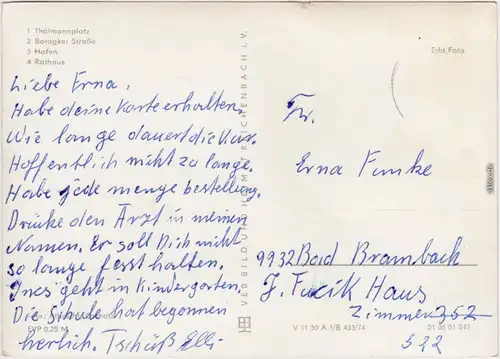 1 Thälmannplatz
2 Boragker Straße
3 Hafen
4 Rathaus
Echt Foto
Liebe Erna.
Habe deine Karte erhalten.
Wie lange dauert die Kur.
Hoffentlich nicht zu lange.
Habe jede menge bestellung.
Drücke den Arzt in meinen
Namen. Er soll Dich nicht
so lange fest halten.
Ines geht in Kindergarten.
Die Schule hat begonnen
herlich. Tschüß Elli
EVP 0,25 M
VEB BILD UND HEIMAT REICHENBACH I. V.
Fr.
Erna Funke
9932 Bad Brambach
J. Fucik Haus
Zimmer 352
322
V 11 50 A 1/B 433/74
01 06 01 047